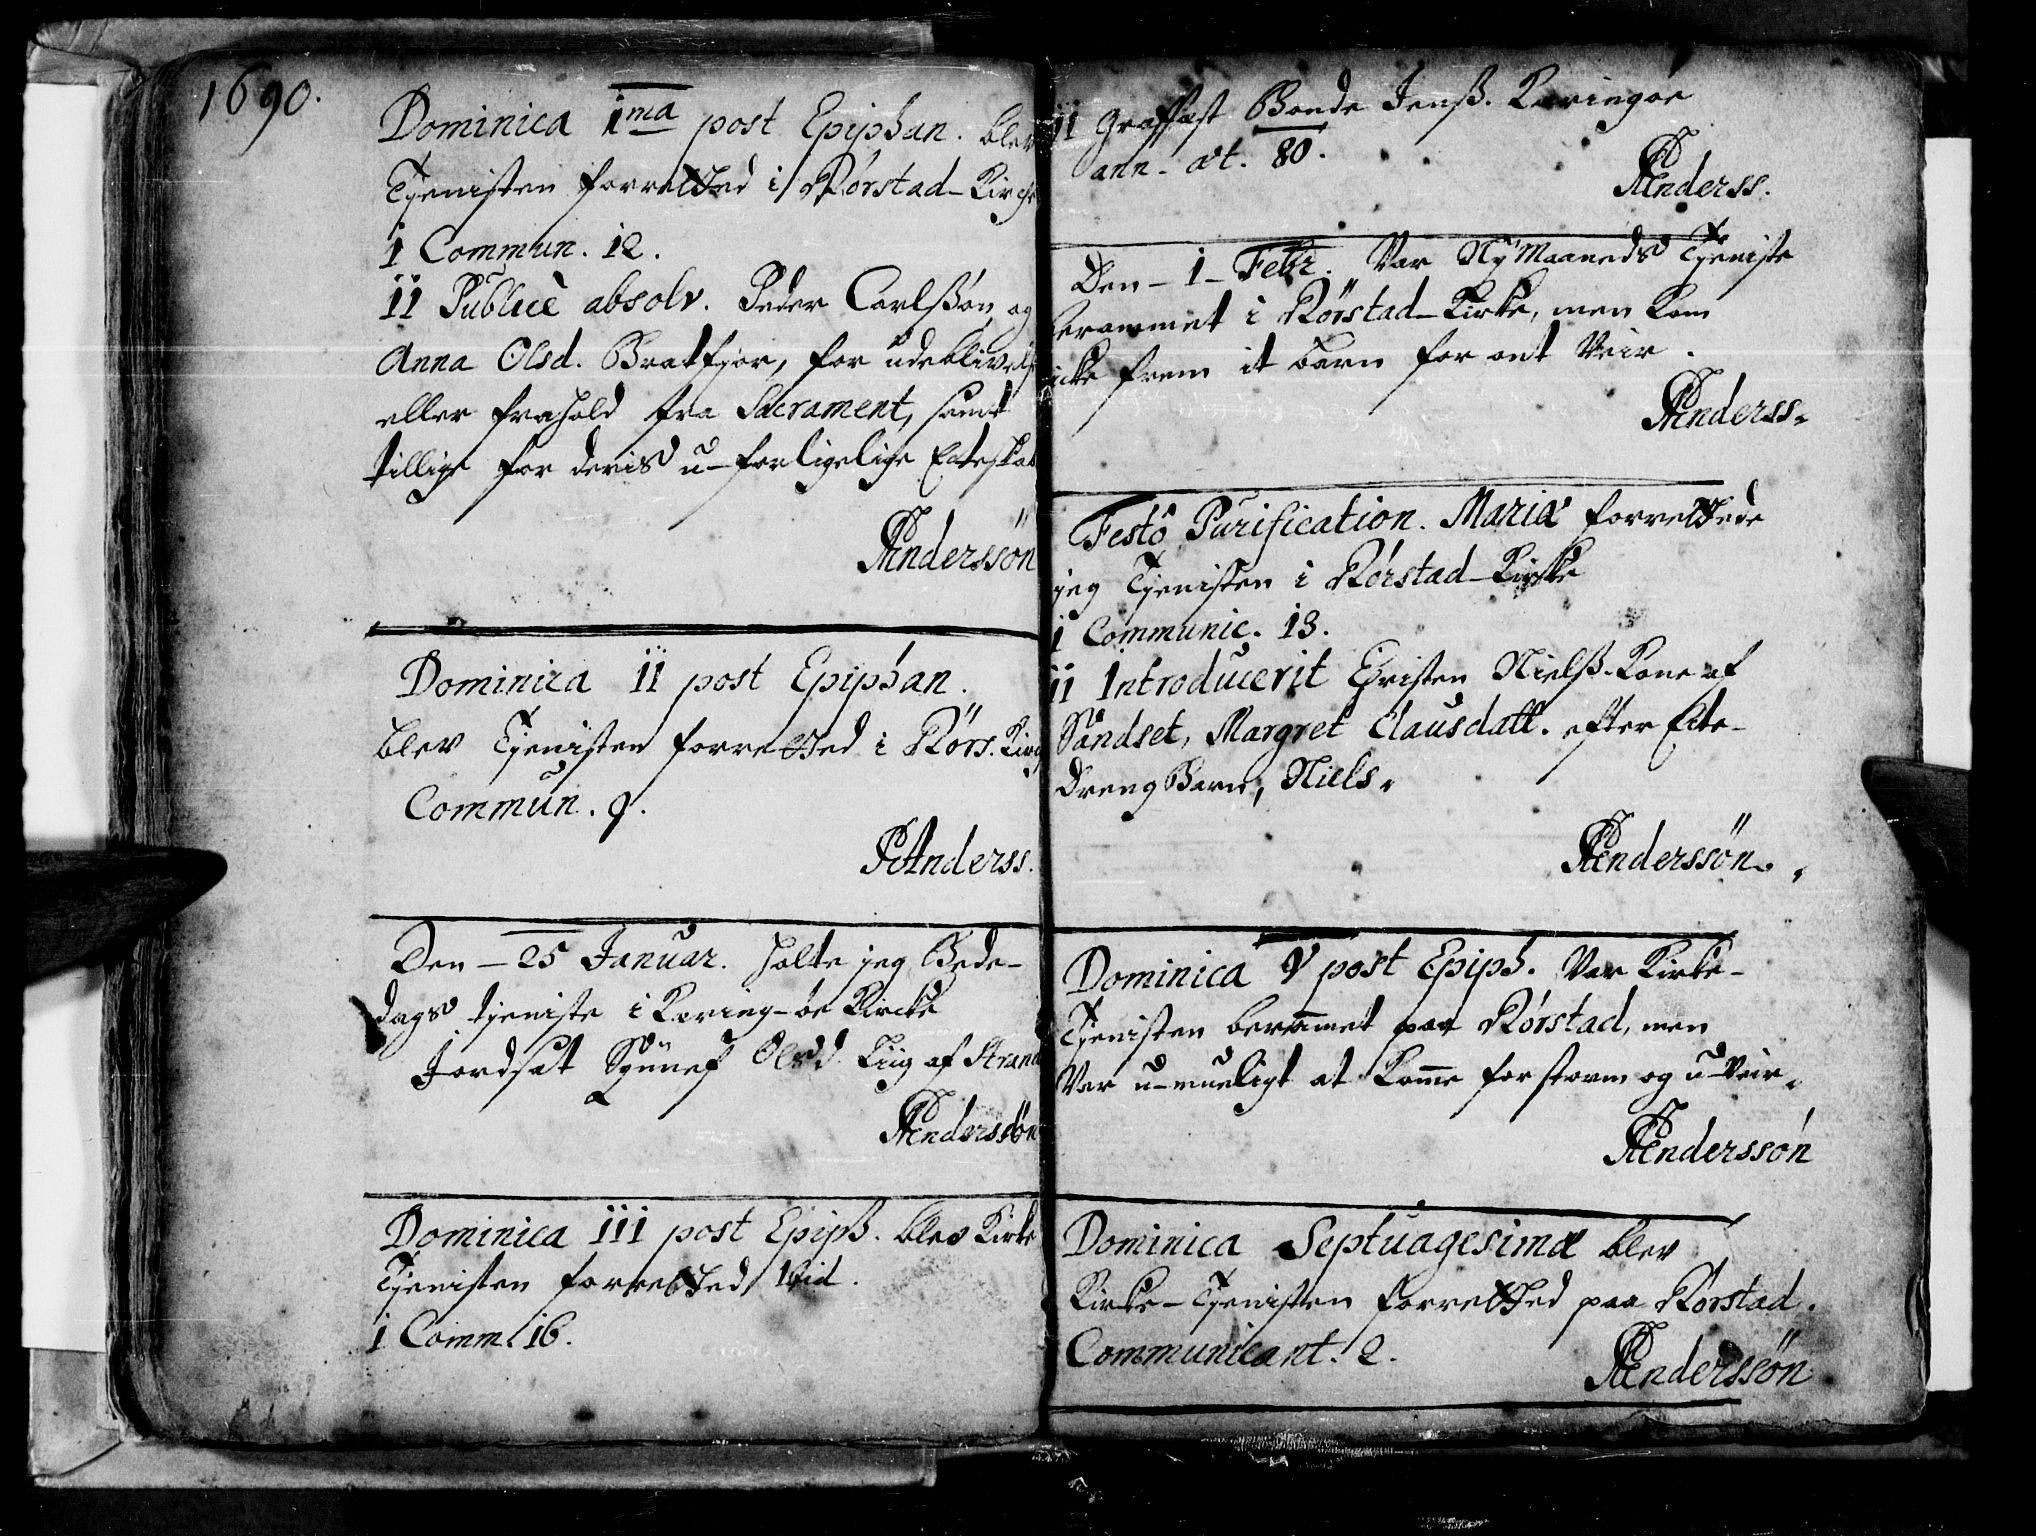 1690.
Dominica 1ma post Epiphan. blev
Tjenisten forretted i Rörstad-Kirche
i Commun. 12.
ii Publicè absolv. Peder Carlßön og
Anna Olsd. Bratfjor, for udeblivelse
eller frahold fra Sacrament, samt
tillige for deris u-forligelige Ecteskab
PAndersson
Dominica ii post Epiphan.
blev Tjenisten forretted i Rörs. Kirch
Commun. 9.
PAnderss.
Den – 25 Januar. holte jeg Bede-
dags tjeniste i Kæring-öe Kircke
Jordsat Synnef Olsd. Liig af Strand
PAnderssön
Dominica iii post Epiph. blev Kirke
Tjenisten forretted ibid.
i Comm. 16.
ii Graffæst Bonde Jenß. Kæringöe
ann. æt. 80.
PAnderss.
Den – 1 – Febr. Var Ny Maaneds Tjeniste
berammet i Rörstad-Kirke, men kom
icke frem it barn for ont Veir.
PAnderss.
Festô Purification. Mariæ forrettede
jeg Tjenisten i Rörstad-Kirke
i Communic. 13.
ii Introducerit Christen Nielß. Kone af
Sandset, Margret Clausdatt. efter Ecte-
Dreng Barn, Niels.
PAnderssön.
Dominica V post Epiph. Var Kirke-
Tjenisten berammet paa Rörstad, men
Var u-mueligt at komme for storm og u-Veir.
PAnderssön
Dominica Septuagesimæ blev
Kirke-Tjenisten forretted paa Rörstad.
Communicant. 2.
PAnderssön